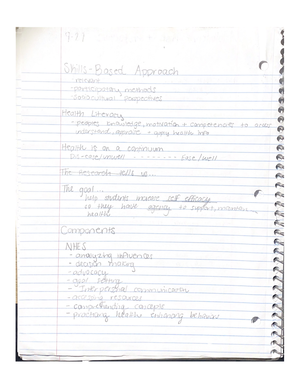 Skills-Based Approach
- participatory methods
Health Literacy
- peoples knowledge, motivation + competencies to access
understand, appraise + apply health info
Health is on a continuum
Dis-ease/unwell -------- Ease/well
The research tells us...
The goal...
help students develop self efficacy
so they have agency to support, maintain
health
Components
NHES
- analyzing influences
- decision making
- advocacy
- goal setting
- Interpersonal communication
- accessing resources
- comprehending concepts
- practicing health enhancing behaviors